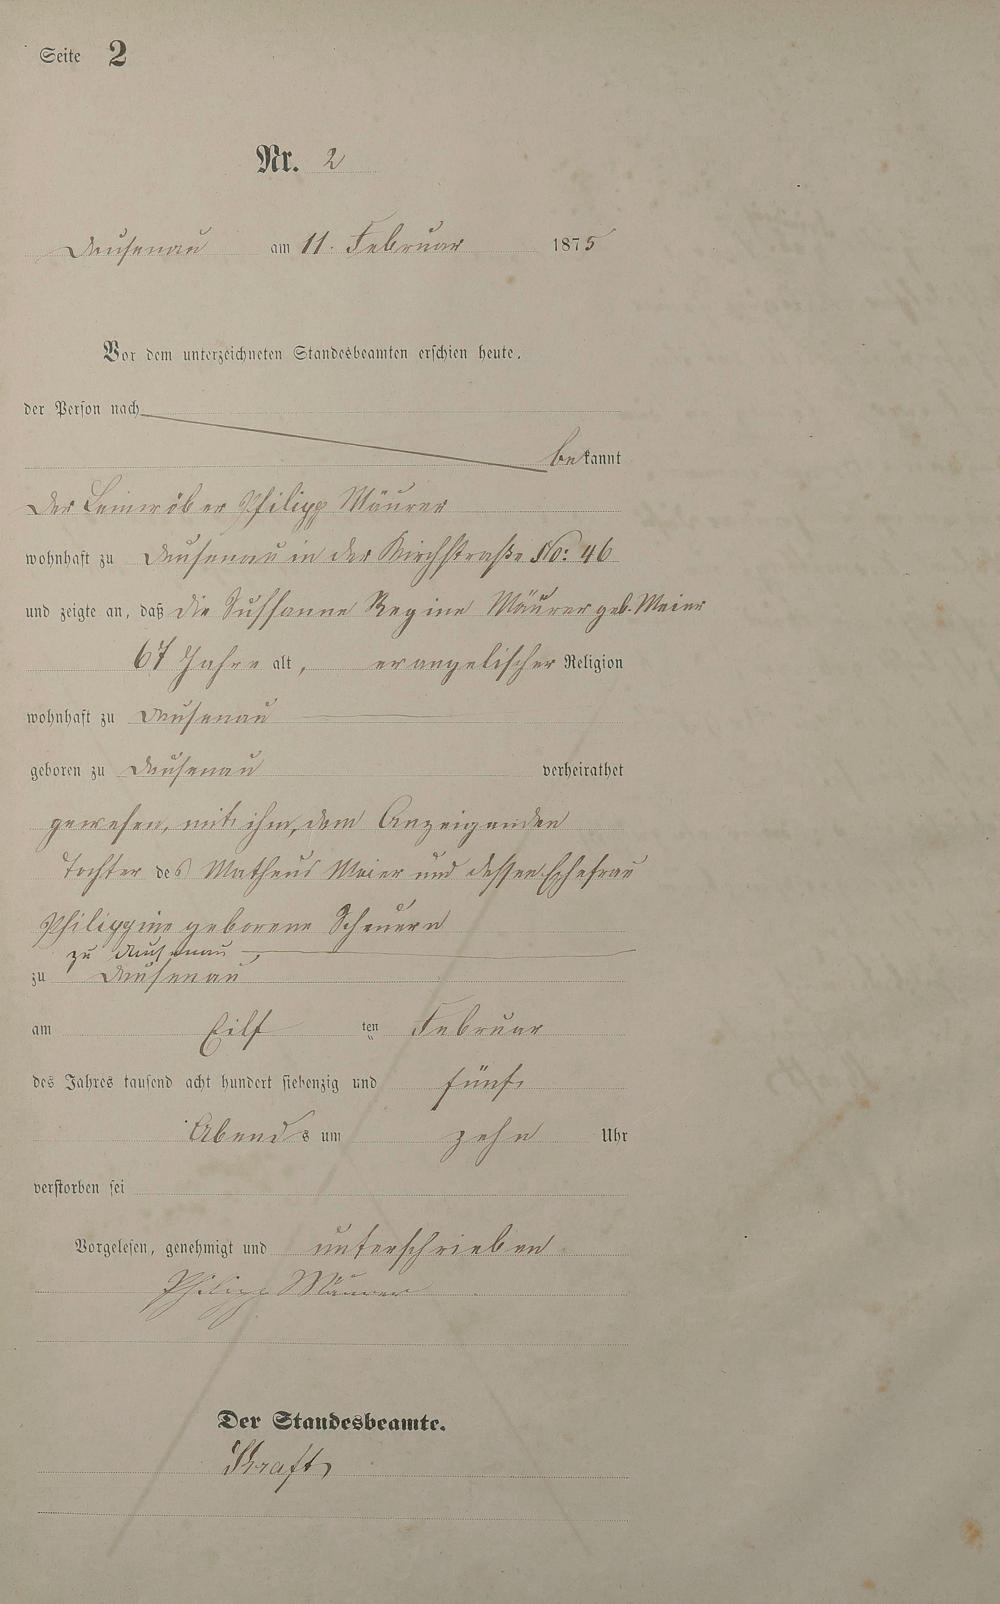 Seite 2
Nr. 2
Dausenau am 11. Februar 1875
Vor dem unterzeichneten Standesbeamten erschien heute.
der Person nach
bekannt
der Leinwöber Philipp Mäurer
wohnhaft zu Dausenau in der Kirchstraße No: 46
und zeigte an, daß die Sussanne Regine Mäurer geb. Meier
67 Jahre alt, evangelischer Religion
wohnhaft zu Dausenau
geboren zu Dausenau verheirathet
gewesen, mit ihm, dem Anzeigenden
Tochter des Matheus Meier und dessen Ehefrau
Philippine geborene Scheuern
zu Dausenau,
zu Dausenau
am Eilf ten Februar
des Jahres tausend acht hundert siebenzig und fünf
Abends um zehn Uhr
verstorben sei
Vorgelesen, genehmigt und unterschrieben
Philipp Mäurer
Der Standesbeamte.
Kraft